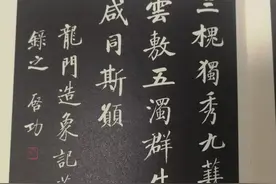 三槐獨秀九蕤
雲敷五濁群生
咸同斯願
龍門造象記
錄之 啓功